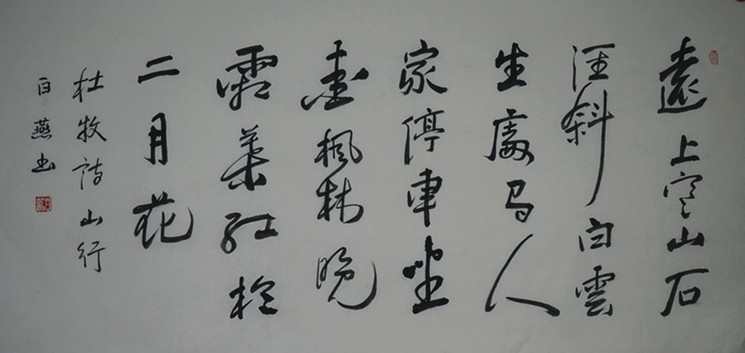 遠上寒山石
徑斜白雲
生處有人
家停車坐
愛楓林晚
霜葉紅於
二月花
杜牧詩山行
白燕书